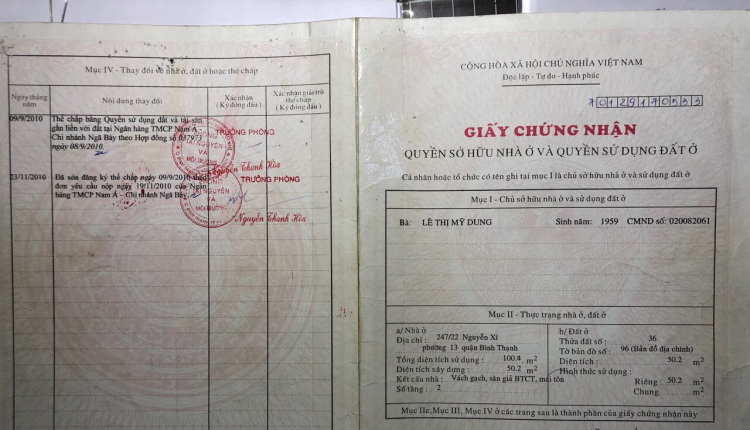 Mục IV - Thay đổi về nhà ở, đất ở hoặc thế chấp
Ngày tháng năm
Nội dung thay đổi
Xác nhận (Ký đóng dấu)
Xác nhận giải trừ thế chấp (Ký đóng dấu)
09/9/2010
Thế chấp bằng Quyền sử dụng đất và tài sản
gắn liền với đất tại Ngân hàng TMCP Nam Á
Chi nhánh Ngã Bảy theo Hợp đồng số 037973
ngày 08/9/2010.
TRƯỞNG PHÒNG
PHÒNG
TÀI NGUYÊN
VÀ
MÔI TRƯỜNG
Nguyễn Thanh Hòa
23/11/2010
Đã xóa đăng ký thế chấp ngày 09/9/2010 theo
đơn yêu cầu nộp ngày 19/11/2010 của Ngân
hàng TMCP Nam Á – Chi nhánh Ngã Bảy.
TRƯỞNG PHÒNG
NGUYÊN
VÀ
MÔI TRƯỜNG
Nguyễn Thanh Hòa
CỘNG HÒA XÃ HỘI CHỦ NGHĨA VIỆT NAM
Độc lập - Tự do - Hạnh phúc
70129170533
GIẤY CHỨNG NHẬN
QUYỀN SỞ HỮU NHÀ Ở VÀ QUYỀN SỬ DỤNG ĐẤT Ở
Cá nhân hoặc tổ chức có tên ghi tại mục I là chủ sở hữu nhà ở và sử dụng đất ở
Mục I - Chủ sở hữu nhà ở và sử dụng đất ở
Bà: LÊ THỊ MỸ DUNG Sinh năm: 1959 CMND số: 020082061
Mục II - Thực trạng nhà ở, đất ở
a/ Nhà ở
Địa chỉ : 247/22 Nguyễn Xí
phường 13 quận Bình Thạnh
Tổng diện tích sử dụng : 100.4 m2
Diện tích xây dựng : 50.2 m2
Kết cấu nhà : Vách gạch, sàn giả BTCT, mái tôn
Số tầng : 2
b/ Đất ở
Thửa đất số : 36
Tờ bản đồ số : 96 (Bản đồ địa chính)
Diện tích : 50.2 m2
Hình thức sử dụng :
Riêng : 50.2 m2
Chung m2
Mục IIc, Mục III, Mục IV ở các trang sau là thành phần của giấy chứng nhận này